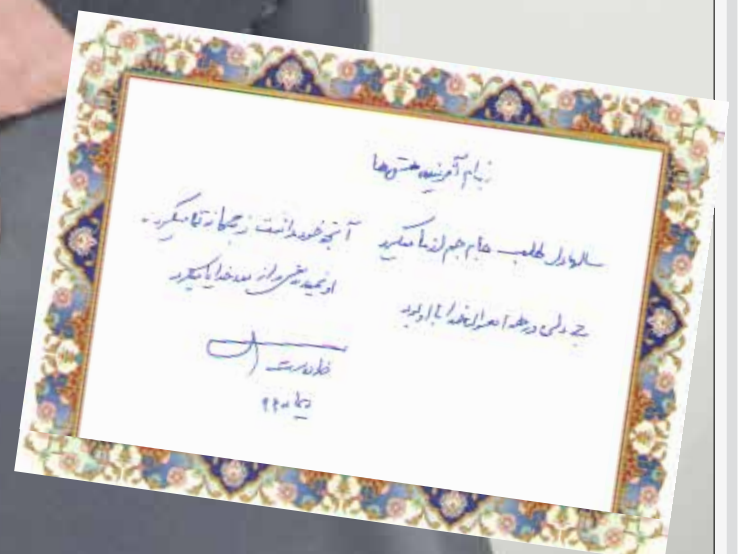 بنام آفریننده
سالها دل طلب جام جم از ما میکرد آنچه خود داشت ز بیگانه تمنا میکرد
بی دلی در همه احوال خدا با او بود او نمیدیدش و از دور خدایا میکرد